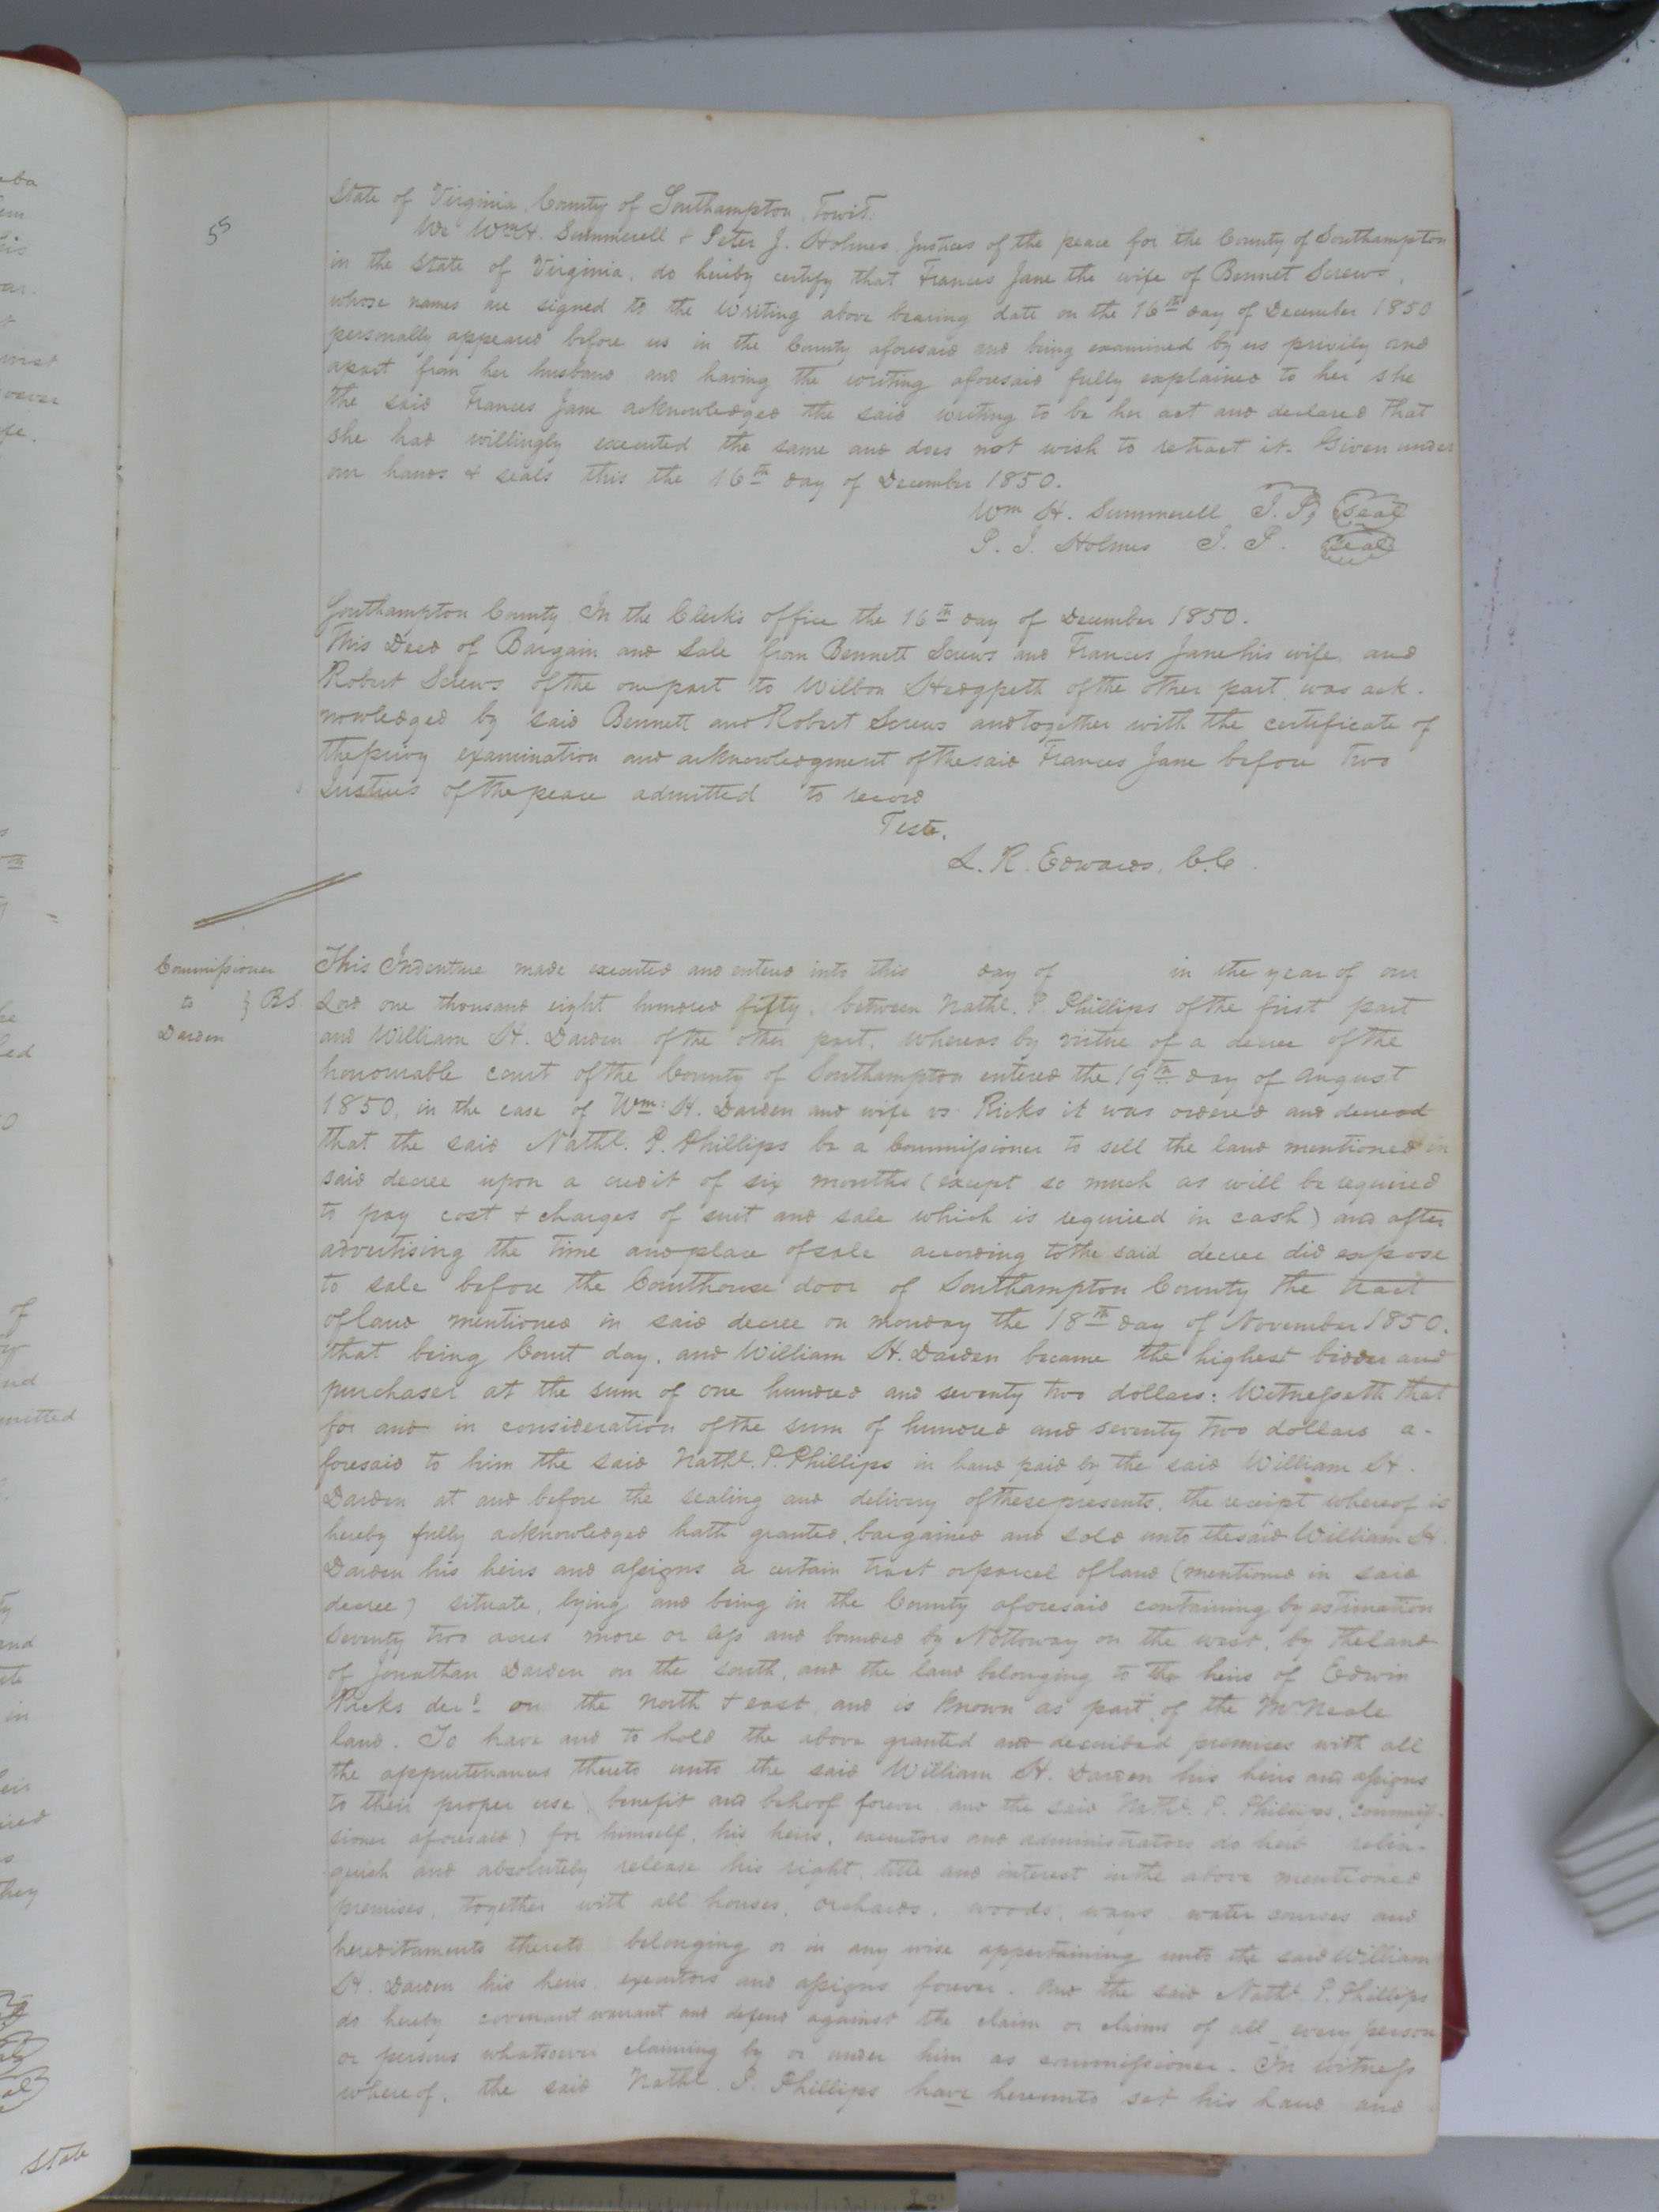 55
State of Virginia, County of Southampton, Towit.
We Wm H. Summerell & Peter J. Holmes Justices of the peace for the County of Southampton
in the State of Virginia, do hereby certify that Frances Jane the wife of Bennet Screws,
whose names are signed to the writing above bearing date on the 16th day of December 1850
personally appeared before us in the County aforesaid and being examined by us privily and
apart from her husband and having the writing aforesaid fully explained to her she
the said Frances Jane acknowledged the said writing to be her act and declared that
she had willingly executed the same and does not wish to retract it. Given under
our hands & seals this the 16th day of December 1850.
Wm H. Summerell J. P. Seal
P. J. Holmes J. P. Seal
Southampton County In the Clerk's office the 16th day of December 1850.
This Deed of Bargain and Sale from Bennett Screws and Frances Jane his wife, and
Robert Screws of the one part to Wilbon Hedgpeth of the other part was ack-
nowledged by said Bennett and Robert Screws and together with the certificate of
the privy examination and acknowledgment of the said Frances Jane before two
Justices of the peace admitted to record
Teste,
L. R. Edwards, C.C.
Commissioner
to } BS.
Darden
This Indenture made executed and entered into this day of in the year of our
Lord one thousand eight hundred fifty, between Nathl. P. Phillips of the first part
and William H. Darden of the other part, whereas by virtue of a decree of the
honourable court of the County of Southampton entered the 19th day of August
1850, in the case of Wm. H. Darden and wife vs Ricks it was ordered and decreed
that the said Nathl. P. Phillips be a Commissioner to sell the land mentioned in
said decree upon a credit of six months (except so much as will be required
to pay cost & charges of suit and sale which is required in cash) and after
advertising the time and place of sale according to the said decree did expose
to sale before the Courthouse door of Southampton County the tract
of land mentioned in said decree on monday the 18th day of November 1850.
that being Court day, and William H. Darden became the highest bidder and
purchaser at the sum of one hundred and seventy two dollars: Witnesseth that
for and in consideration of the sum of hundred and seventy two dollars a-
foresaid to him the said Nathl. P. Phillips in hand paid by the said William H.
Darden at and before the sealing and delivery of these presents, the receipt whereof is
hereby fully acknowledged hath granted, bargained and sold unto the said William H.
Darden his heirs and assigns a certain tract or parcel of land (mentioned in said
decree) situate, lying and being in the County aforesaid containing by estimation
seventy two acres more or less and bounded by Nottoway on the west, by the land
of Jonathan Darden on the south, and the land belonging to the heirs of Edwin
Ricks decd on the north & east and is known as part of the McNeale
land. To have and to hold the above granted and described premises with all
the appurtenances thereto unto the said William H. Darden his heirs and assigns
to their proper use, benefit and behoof forever and the said Nathl. P. Phillips, commis-
sioner aforesaid) for himself, his heirs, executors and administrators do herb relin-
quish and absolutely release his right, title and interest in the above mentioned
premises, together with all houses, orchards, woods, ways water courses and
hereditaments thereto belonging or in any wise appertaining unto the said William
H. Darden his heirs executors and assigns forever. And the said Nathl. P. Phillips
do hereby covenant warrant and defend against the claim or claims of all every person
or persons whatsoever claiming by or under him as commissioner. In witness
whereof, the said Nathl. P. Phillips have hereunto set his hand and
State